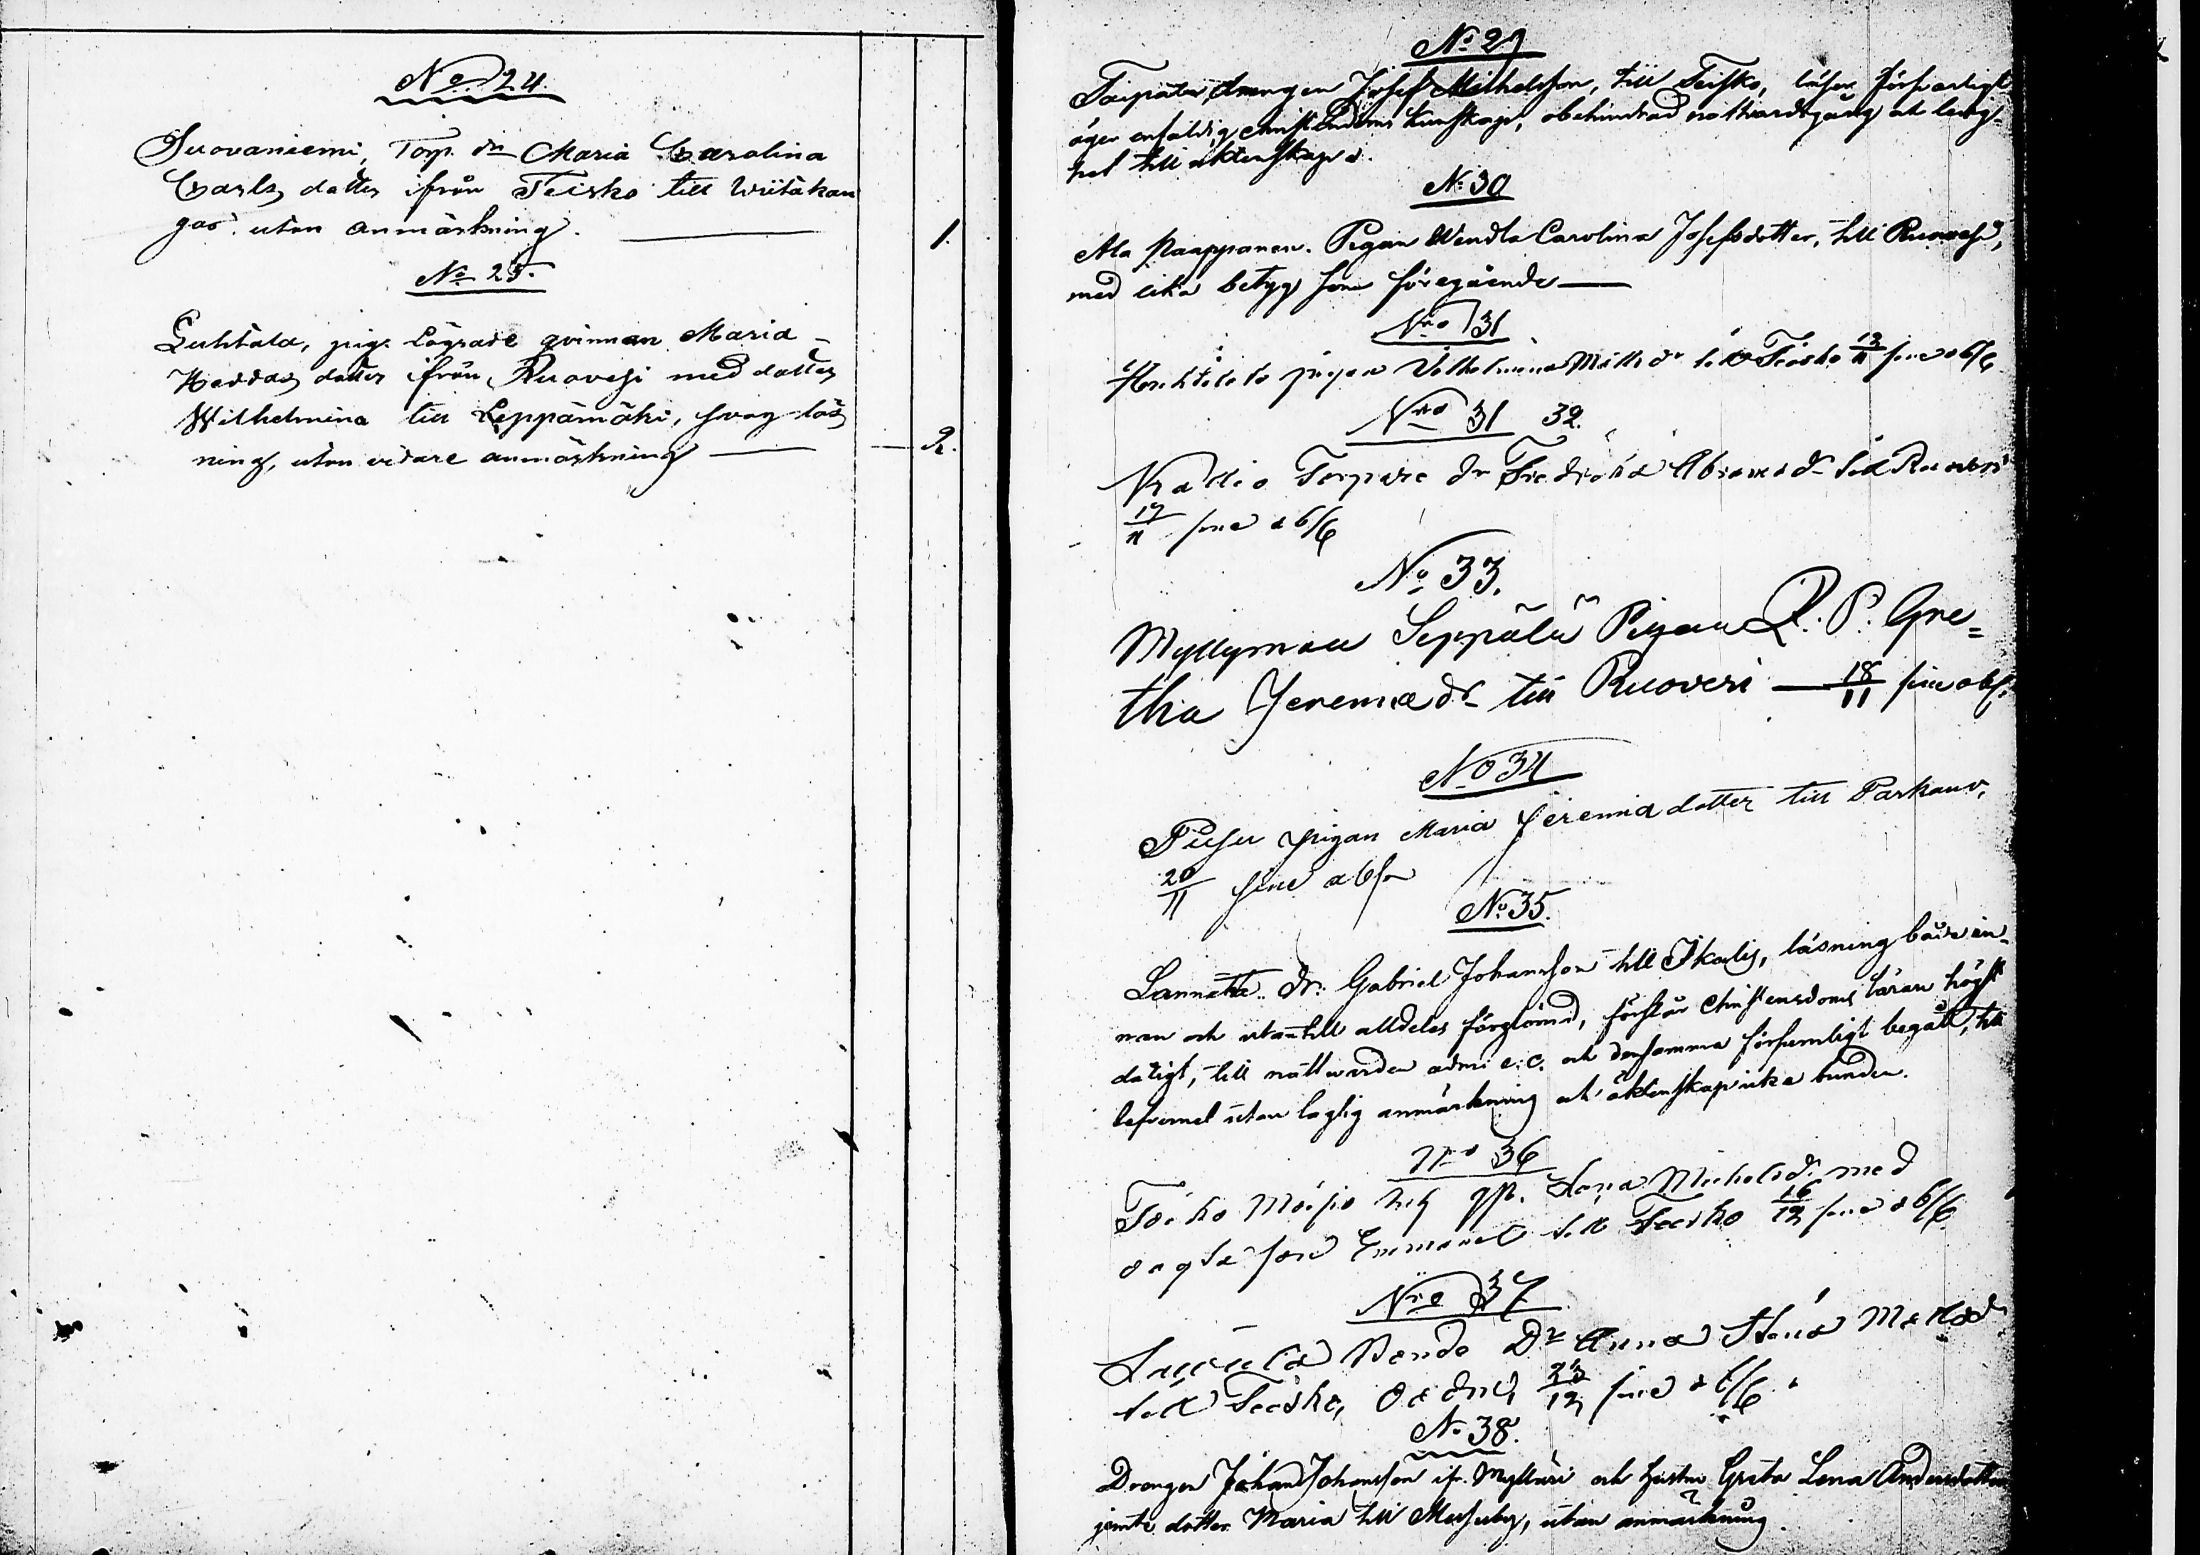 No 24.
Suovaniemi, Torp. dr Maria Carolina
Carls dotter ifrån Teisko till Wiitakan
gas. utan anmärkning. 1.
No 25.
Luhtala, pig. lägrade qvinnan Maria
dotter ifrån Ruovesi med dotter
Wilhelmina till Leppämäki, svag läs
ning, utan vidare anmärkning 2.
No 29
Drengen Josef Michelsson, till Teisko, läser försvarligt
äger enfaldig christendoms kunskap, obehindrad nattvardsgång och ledig-
het till äktenskap.
No 30
Ala Kaappanen. Pigan Wendla Carolina Josefsdotter, till Ruovesi,
med lika betyg som föregående
Nro 31
pigan Vilhelmina Matts dr till Teisko sine obs
Nro 31 32.
Torpare dr Fredrika Abrams dr till Ruovesi
17/11 sine obs
No 33.
Myllymaa Seppälä Pigan Gre=
tha Jeremiæ dr till Ruovesi 18/11 sine obs.
No 34
pigan Maria Jeremiadotter till Parkano.
20/11 sine obs
No 35.
Dr. Gabriel Johansson till Ikalis, läsning både in-
nan och utantill alldeles förglömd, förstår christendoms läran högst
dåligt, till nattvarden adm: e. c. och densamma försumligt begått, till
lefvernet utan laglig anmärkning och äktenskap icke bunden.
Nro 36
Michelsd. med
oägta son Emmanuel till Teisko 16/12 sine obs
Nro 37
Bonde Dr Anna Matts d
till Teisko, 23/12 sine obs.
No 38.
Drengen Johan Johansson ifr. Myllari och hustru Greta Lena Andersdotter
jemte dotter Maria till Messuby, utan anmärkning